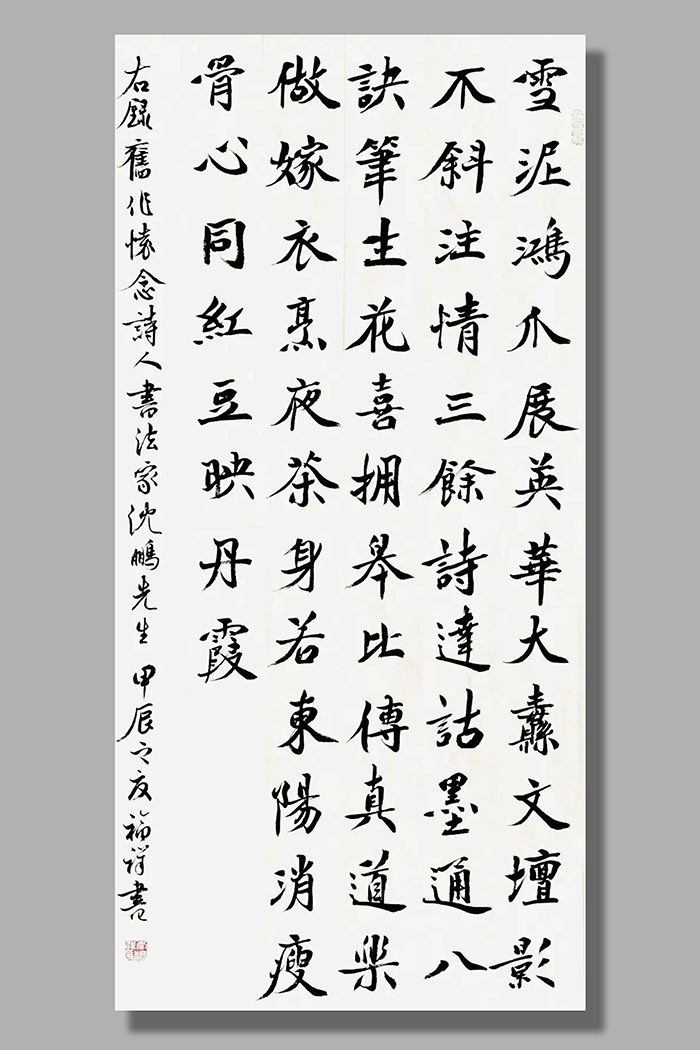 雪泥鴻爪展英華大纛文壇影
不斜注情三餘詩達詁墨通八
訣筆生花喜拥舉比傳真道樂
做嫁衣烹夜茶身若東陽消瘦
骨心同紅豆映丹霞
右録舊作懷念詩人書法家沈鵬先生 甲辰之夏福祥書